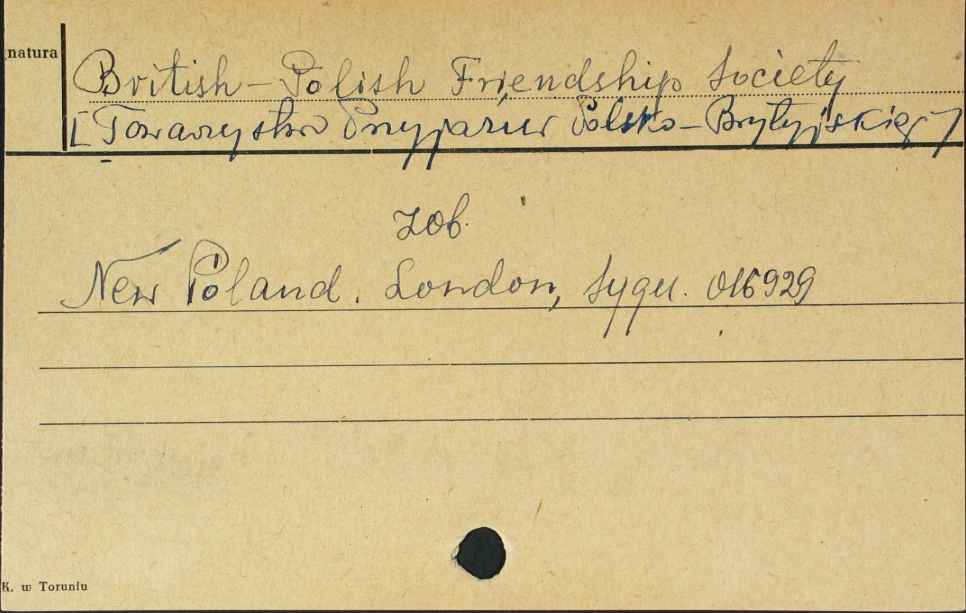 natura
British-Polish Friendship Society
[Towarzystwo Przyjaźni Polsko-Brytyjskiej]
zob.
New Poland. London, sygn. 016929
K. w Toruniu